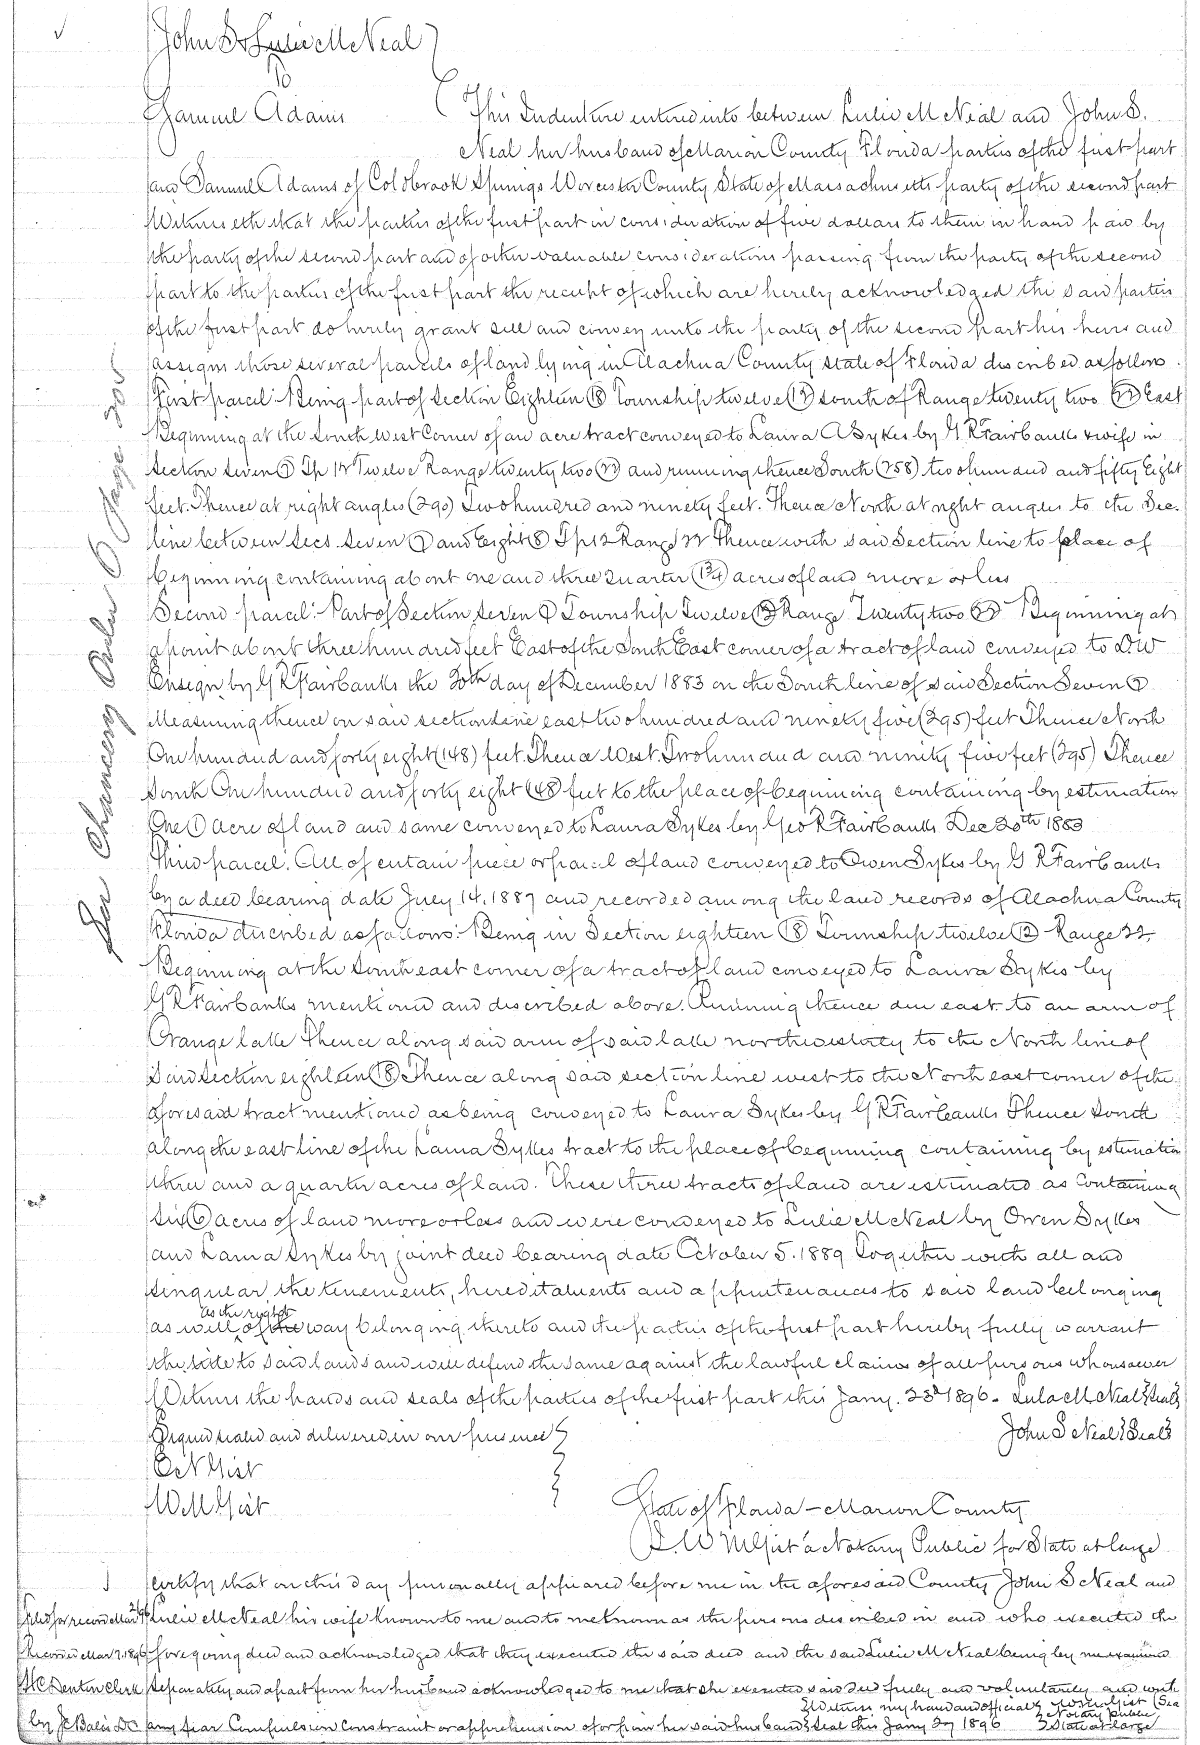 John S & Lulie M Neal
To
Samuel Adams
This Indenture entered into between Lulie M Neal and John S.
Neal her husband of Marion County Florida parties of the first part
and Samuel Adams of Coldbrook Springs Worcester County State of Massachusetts party of the second part
Witnesseth that the parties of the first part in consideration of five dollars to them in hand paid by
the party of the second part and of other valuable considerations passing from the party of the second
part to the parties of the first part the receipt of which are hereby acknowledged the said parties
of the first part do hereby grant sell and convey unto the party of the second part his heirs and
assigns those several parcels of land lying in Alachua County State of Florida described as follows
First parcel Being part of Section Eighteen (18) Township twelve (12) South of Range twenty two (22) East
Beginning at the South West Corner of an acre tract conveyed to Laura A Sykes by G R Fairbanks & wife in
Section Seven (7) Tp 12 Twelve Range twenty two (22) and running thence South (258) two hundred and fifty Eight
feet. Thence at right angles (290) Two hundred and ninety feet. Thence North at right angles to the Sec.
line between Secs Seven (7) and Eight (8) Tp 12 Range 22 Thence with said Section line to place of
beginning containing about one and three quarter (1 3/4) acres of land more or less
Second parcel: Part of Section Seven (7) Township Twelve (12) Range Twenty two (22) Beginning at
a point about three hundred feet East of the South East corner of a tract of land conveyed to D.W
Ensign by G R Fairbanks the 20th day of December 1883 on the South line of said Section Seven (7)
Measuring thence on said section line east two hundred and ninety five (295) feet Thence North
One hundred and forty eight (148) feet. Thence West Two hundred and ninety five feet (295) Thence
South One hundred and forty eight (148) feet to the place of beginning containing by estimation
One (1) acre of land and same conveyed to Laura Sykes by Geo R Fairbanks Dec 20th 1883
Third parcel. All of certain piece or parcel of land conveyed to Owen Sykes by G R Fairbanks
by a deed bearing date July 14. 1887 and recorded among the land records of Alachua County
Florida described as follows: Being in Section eighteen (18) Township twelve (12) Range 22
Beginning at the South east corner of a tract of land conveyed to Laura Sykes by
G R Fairbanks mentioned and described above. Running thence due east to an arm of
Orange lake Thence along said arm of said lake northwesterly to the North line of
said section eighteen (18) Thence along said section line west to the North east corner of the
aforesaid tract mentioned as being conveyed to Laura Sykes by G R Fairbanks Thence South
along the east line of the Laura Sykes tract to the place of beginning containing by estimation
three and a quarter acres of land. These three tracts of land are estimated as containing
six (6) acres of land more or less and were conveyed to Lulie M Neal by Owen Sykes
and Laura Sykes by joint deed bearing date October 5. 1889 Together with all and
singular the tenements, hereditaments and appurtenances to said land belonging
as well as the right of the way belonging thereto and the parties of the first part hereby fully warrant
the title to said lands and will defend the same against the lawful claims of all persons whomsoever
Witness the hands and seals of the parties of the first part this Jany. 23d 1896. Lula M Neal {Seal}
Signed sealed and delivered in our presence John S Neal {Seal}
W M Gist
State of Florida - Marion County
I. W M Gist a Notary Public for State at large
certify that on this day personally appeared before me in the aforesaid County John S Neal and
Lulie M Neal his wife known to me and to me known as the persons described in and who executed the
foregoing deed and acknowledged that they executed the said deed and the said Lulie M Neal being by me examined
separately and apart from her husband acknowledged to me that she executed said deed freely and voluntarily and with
any fear Compulsion Constraint or apprehension of or from her said husband Witness my hand and official seal this Jany 27 1896
W M Gist (Sea
Notary Public
State at large
Filed for record Mar
Recorded Mar 7. 1896
Denton Clerk
by J C Bales DC
See Chancery Order 6 page 205